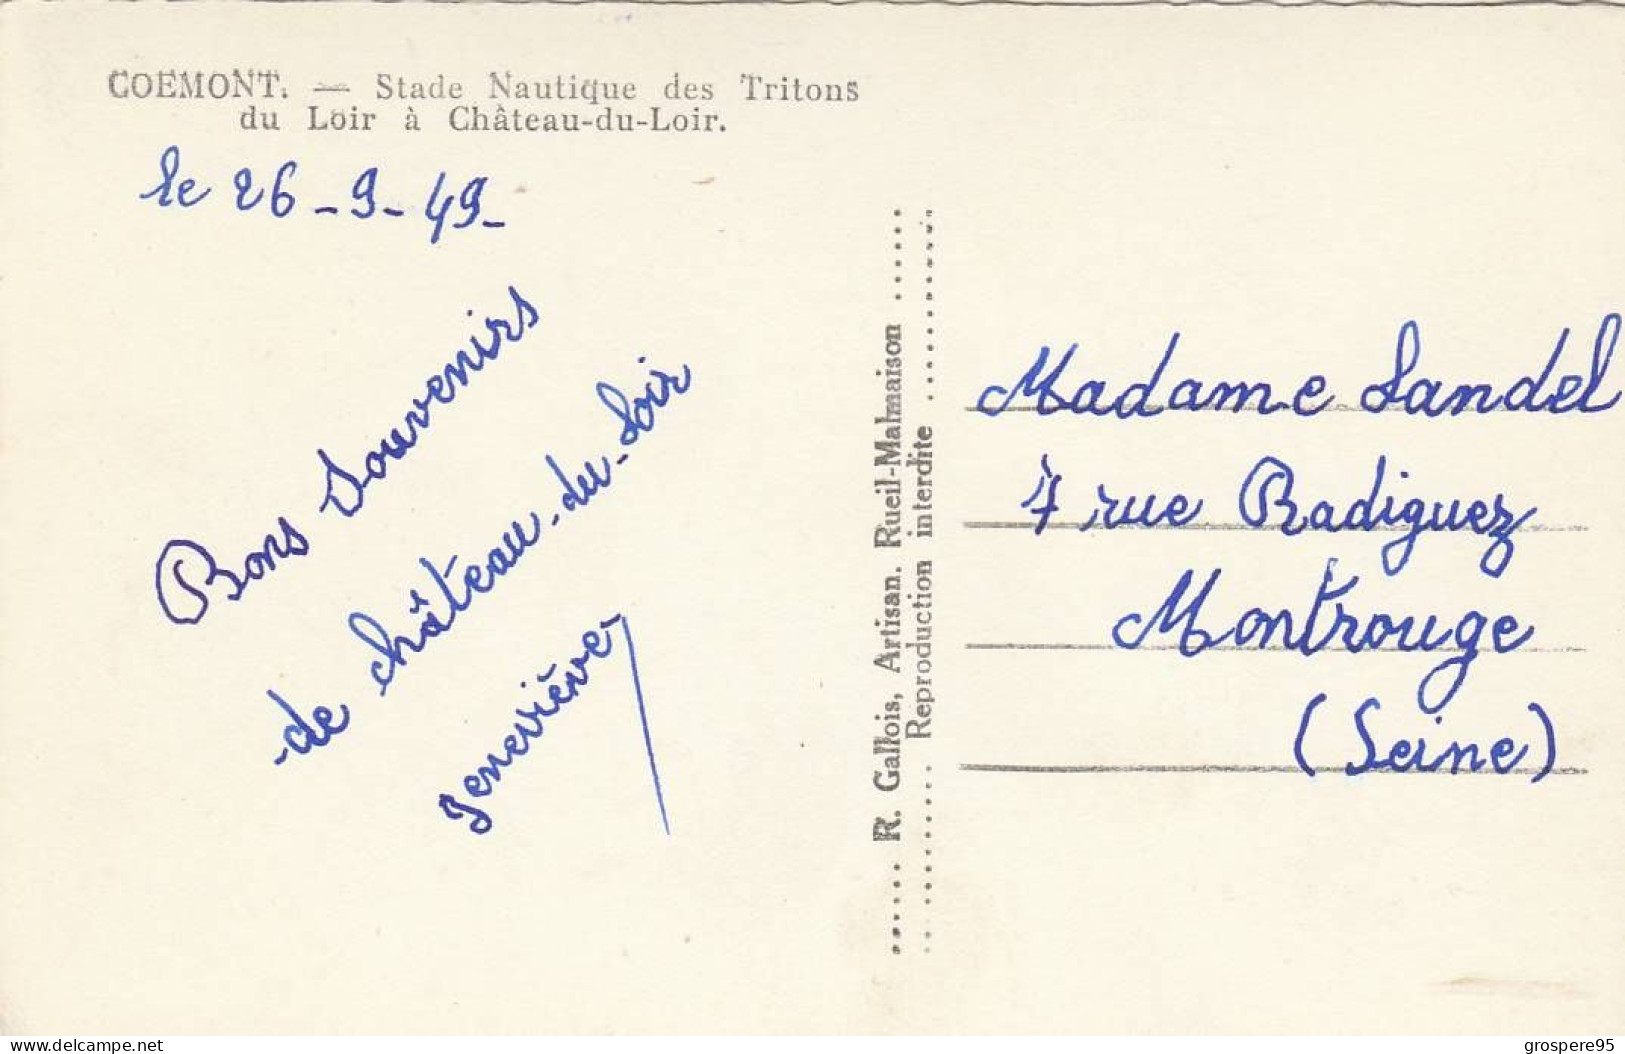 COEMONT. — Stade Nautique des Tritons
du Loir à Château-du-Loir.
le 26-9-49-
Bons Souvenirs
de château-du-Loir
Geneviève
R. Gallois, Artisan. Rueil-Malmaison
Reproduction interdite
Madame Landel
7 rue Radiguez
Montrouge
(Seine)
www.delcampe.net
grospere95